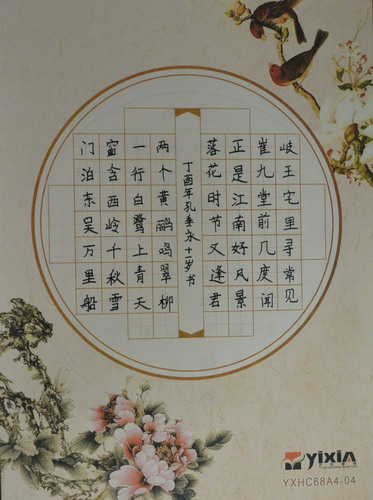 岐王宅里寻常见
崔九堂前几度闻
正是江南好风景
落花时节又逢君
丁酉年孔垂永十1岁书
两个黄鹂鸣翠柳
一行白鹭上青天
窗含西岭千秋雪
门泊东吴万里船
yixin
YXHC68A4-04